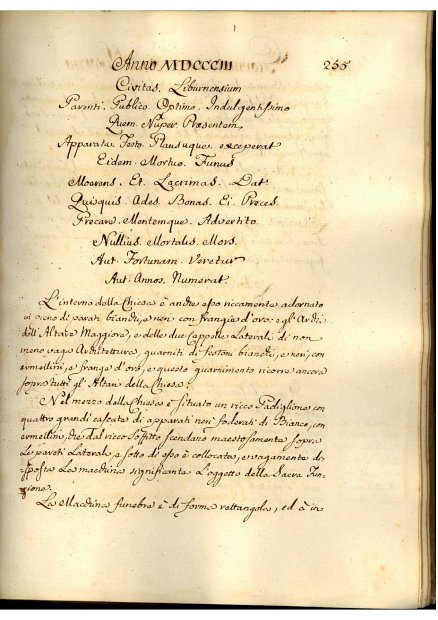 Anno MDCCCIII 255
Civitas. Liburnensium
Parenti. Publico. Optimo. Indulgentissimo
Quem. Nuper. Præsentem
Apparatu. Festo. Plausuque. exceperat
Eidem. Mortuo. Funus
Moerens. Et. Lacrimas. Dat.
Quisquis. Ades. Bonas. Ei. Preces.
Precare. Mentemque. Advertito.
Nullius. Mortalis. Mors.
Aut. Fortunam. Veretur
Aut. Annos. Numerat.
L'interno della Chiesa è anche esso riccamente adornato
in pieno di parati bianchi, e neri con frangie d'oro: e gl'Archi
dell'Altare Maggiore, e delle due Cappelle Laterali di non
meno vaga Architettura, guarniti di festoni bianchi, e neri, con
ermellini, e frange d'oro, e questo guarnimento ricorre ancora
sopra tutti gl'Altari della Chiesa.
Nel mezzo della Chiesa è situato un ricco Padiglione, con
quattro grandi cascate di apparati neri foderati di Bianco, con
ermellino, che dal ricco soffitto scendano maestosamente sopra
Le pareti Laterali, e sotto di esso è collocata, e vagamente di-
sposta La machina significante L'oggetto della Sacra Fun-
zione.
La Machina funebre è di forma rettangola, ed à in